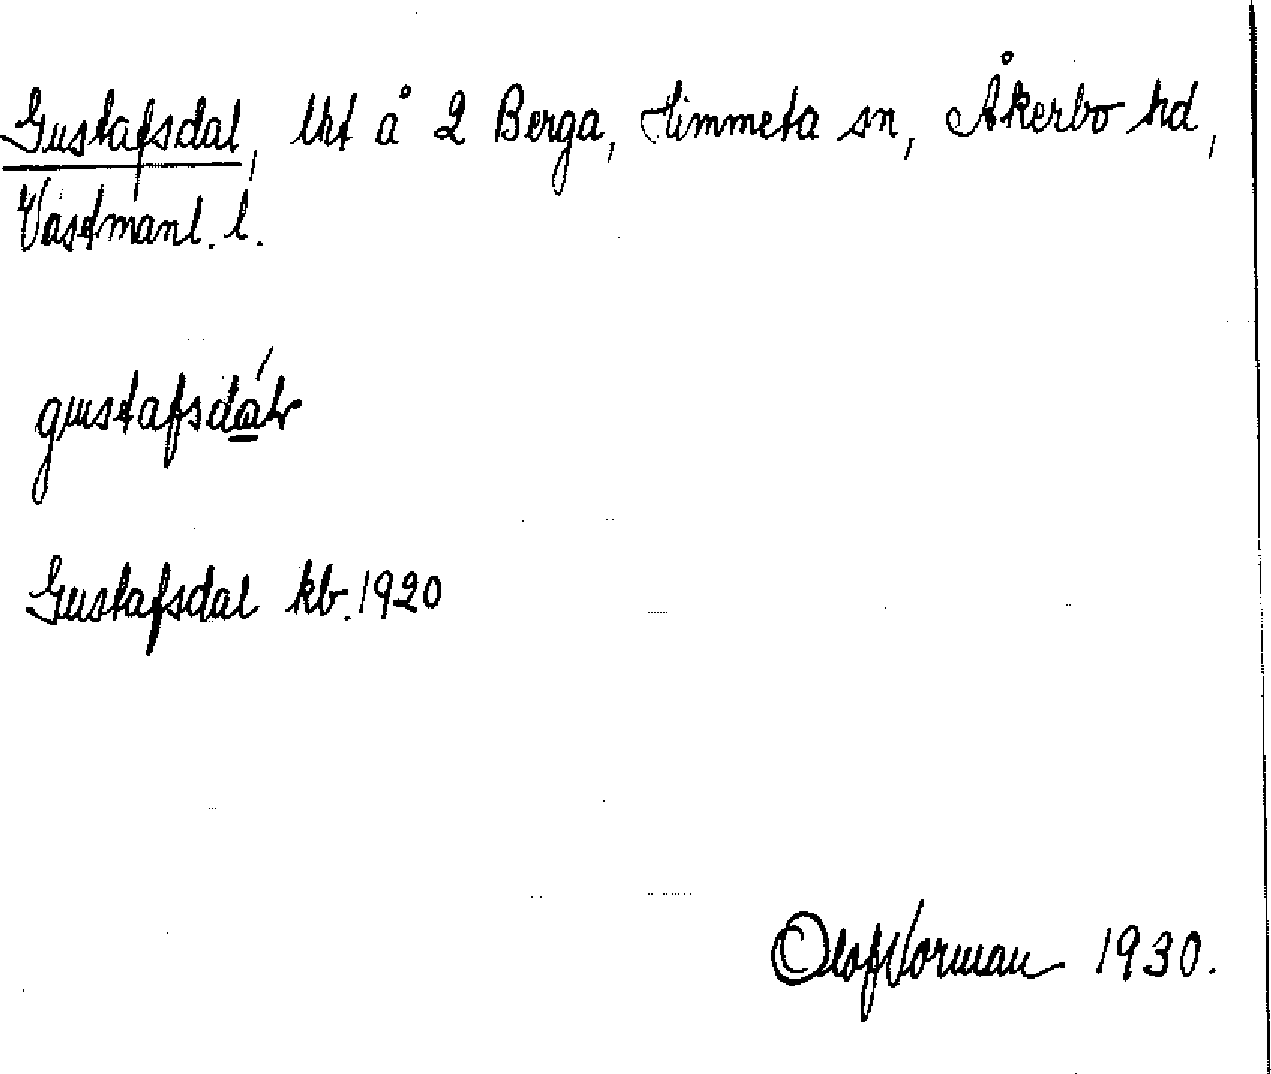 Gustafsdal, lht å 2 Berga, Himmeta sn, Åkerbo hd,
Västmanl. l.
gustafsdáḷ
Gustafsdal kb. 1920
Olof Norman 1930.